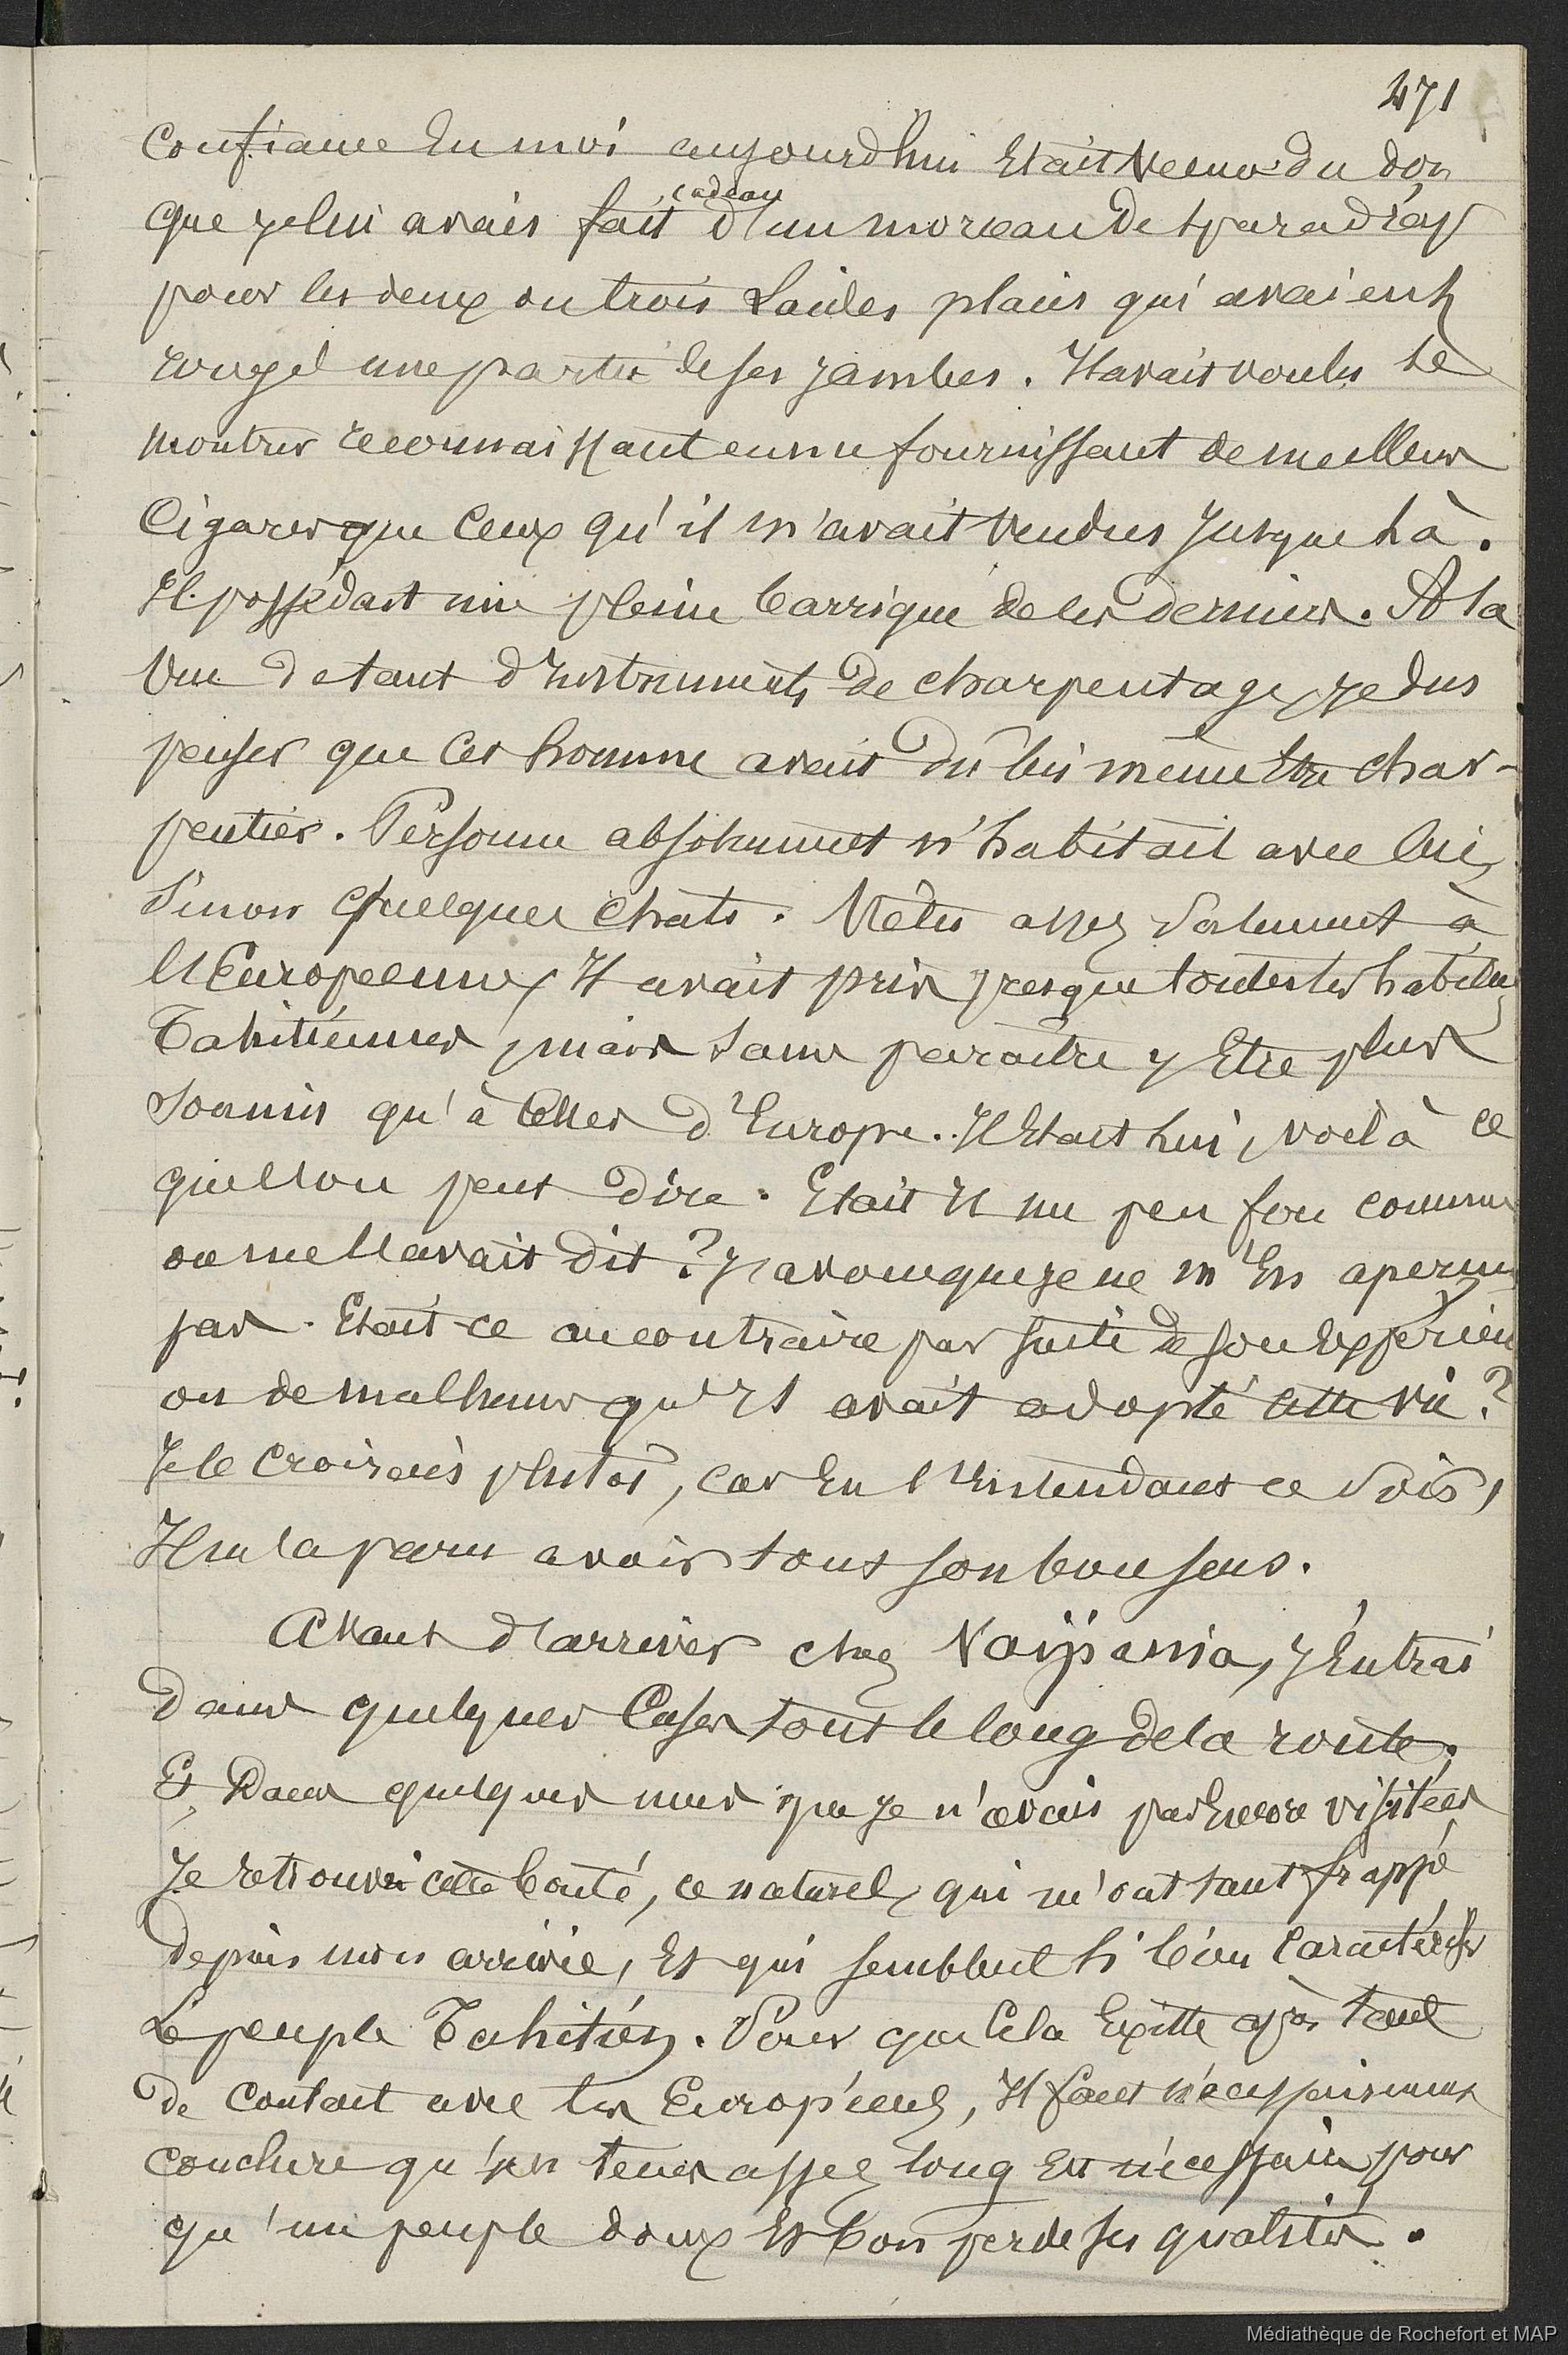 471
confiance En moi aujourd'hui Etait venue du don
cadeau
que je lui avais fait d'un morceau de sparadrap
pour les deux ou trois Laides plaies qui avaient
rongé une partie de ses jambes. Il avait voulu se
montrer reconnaissant en me fournissant de meilleurs
Cigares que Ceux qu'il m'avait Vendus Jusque là.
Il possédait une pleine barrique de ces derniers. A la
Vue de tant d'Instruments de charpentage, je dus
penser que Cet homme avait du lui même Etre char-
pentier. Personne absolument n'habitait avec lui,
Sinon Quelques Chats. Vêtu assez Salement à
l'Européenne, Il avait pris presque toutes les habitudes
Tahitiennes, mais sans paraitre y Etre plus
soumis qu'à Celles d'Europe. Il Etait lui, voilà ce
que l'on peut dire. Etait Il un peu fou comme
on me l'avait dit ? J'avoue que je ne m'En aperçus
pas. Etait-ce au contraire par suite de son Expérience
ou de malheurs qu'Il avait adopté cette vie ?
Je le Croirais plutôt, car En l'Entendant ce Soir,
Il m'a paru avoir tout son bon sens.
Avant d'arriver chez Vaipania, j'Entrai
Dans quelques Cases tout le long de la route,
Et Dans quelques unes que je n'avais pas Encore visitées
Je retrouvai cette bonté, ce naturel, qui m'ont tant frappé
depuis mon arrivée, Et qui semblent si bien Caractériser
Le peuple Tahitien. Pour que Cela Existe après tant
de Contact avec les Européens, Il faut nécessairement
conclure qu'un temps assez long Est nécessaire pour
qu'un peuple doux Et bon perde ses qualités.
Médiathèque de Rochefort et MAP